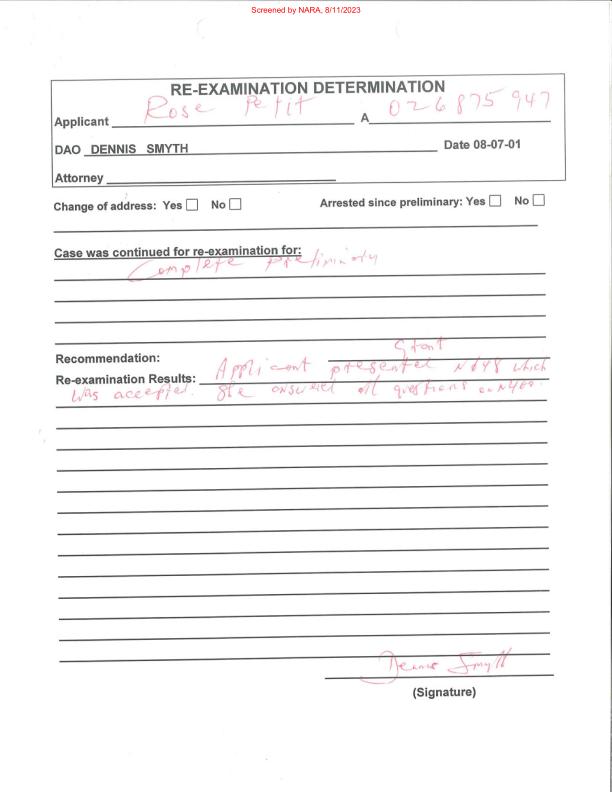 Screened by NARA, 8/11/2023
RE-EXAMINATION DETERMINATION
Applicant Rose Petit A 026 875 947
DAO DENNIS SMYTH Date 08-07-01
Attorney
Change of address: Yes ☐ No ☐ Arrested since preliminary: Yes ☐ No ☐
Case was continued for re-examination for:
Complete preliminary
Recommendation: Grant
Re-examination Results: Applicant presented N648 which
was accepted. She answered all questions on N400.
Dennis Smyth
(Signature)